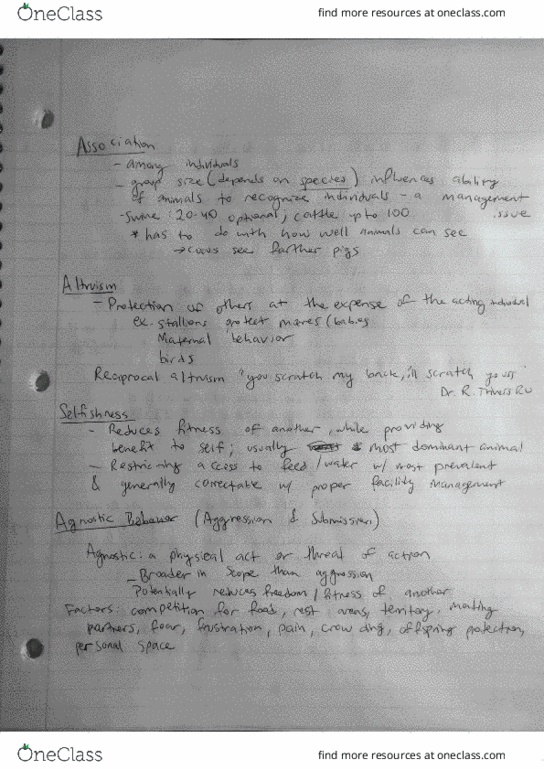 OneClass
find more resources at oneclass.com
Association
- among individuals
- group size (depends on species) influences ability
of animals to recognize individuals - a management
issue
- Swine: 20-40 optional; cattle up to 100
* has to do with how well animals can see
→ cows see farther pigs
Altruism
- Protection of others at the expense of the acting individual
ex. stallions protect mares (babies
Maternal behavior
birds
Reciprocal altruism "you scratch my back, ill scratch yours"
Dr. R. Trivers RU
Selfishness
- Reduces fitness of another, while providing
benefit to self; usually most dominant animal
- Restricting access to feed/water w/ most prevalent
& generally correctable w/ proper facility management
Agnostic Behavior (Aggression & Submission)
Agnostic: a physical act or threat of action
- Broader in scope than aggression
Potentially reduces freedom/fitness of another
Factors: competition for food, rest areas, territory, mating
partners, fear, frustration, pain, crowding, offspring protection,
personal space
OneClass
find more resources at oneclass.com